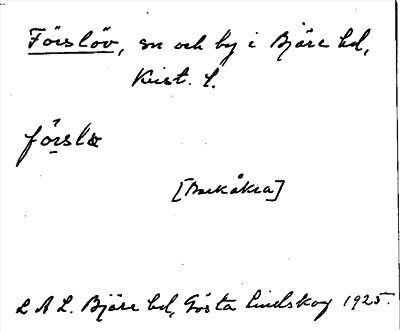 Förslöv, sn och by i Bjäre hd,
Krist. l.
förslœ
[Barkåkra]
L A L. Bjäre hd, Gösta Lindskog 1925.